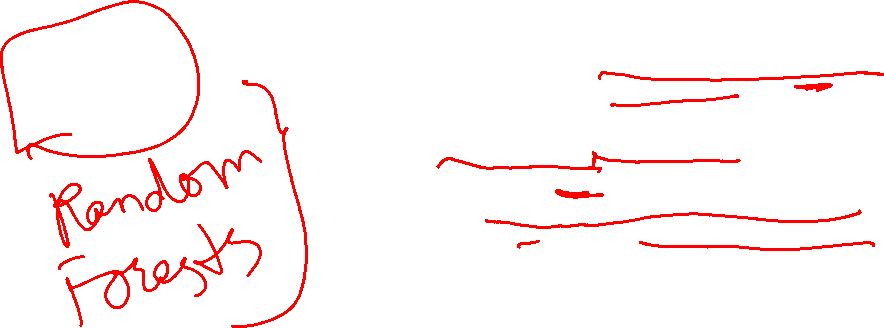 Random
Forests